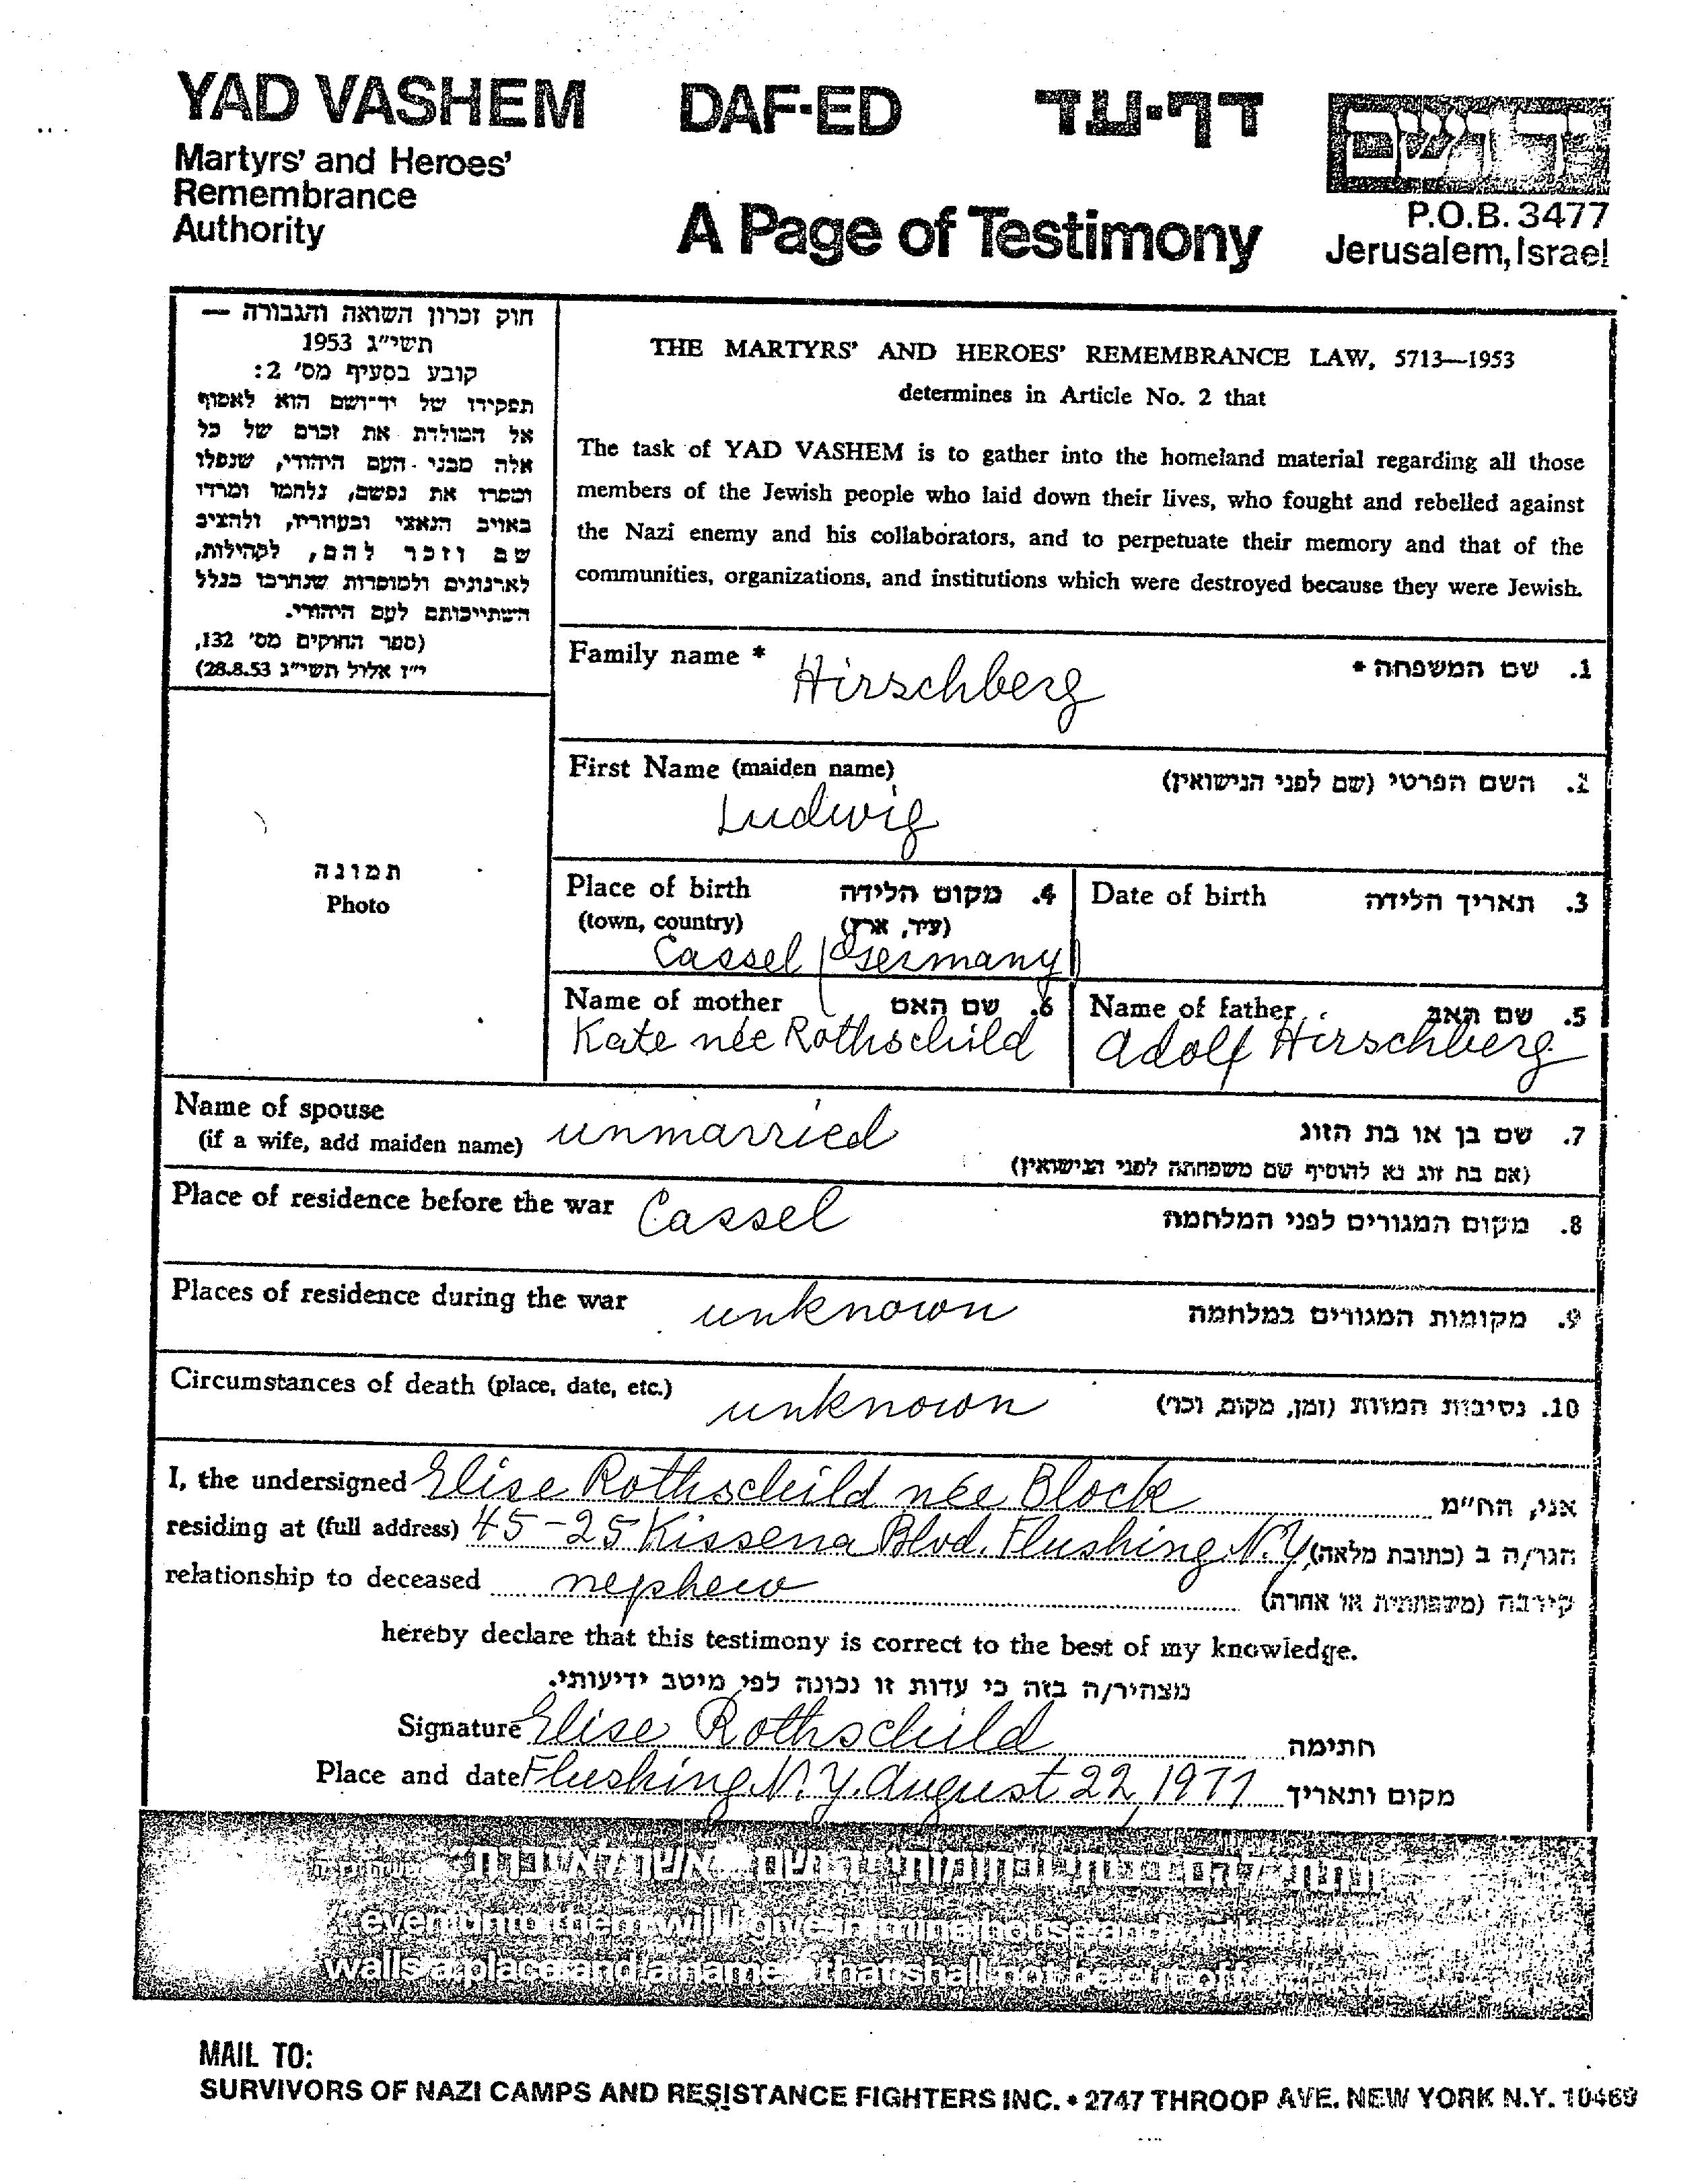 YAD VASHEM
Martyrs' and Heroes'
Remembrance
Authority
DAF-ED
דף-עד
A Page of Testimony
P.O.B. 3477
Jerusalem, Israel
חוק זכרון השואה והגבורה —
תשי"ג 1953
קובע בסעיף מס' 2:
תפקידו של יד־ושם הוא לאסוף
אל המולדת את זכרם של כל
אלה מבני העם היהודי, שנפלו
ומסרו את נפשם, נלחמו ומרדו
באויב הנאצי ובעוזריו, ולהציב
שם וזכר להם, לקהילות,
לארגונים ולמוסדות שנחרבו בגלל
השתייכותם לעם היהודי.
(ספר החוקים מס' 132,
י"ז אלול תשי"ג 28.8.53)
THE MARTYRS' AND HEROES' REMEMBRANCE LAW, 5713—1953
determines in Article No. 2 that
The task of YAD VASHEM is to gather into the homeland material regarding all those
members of the Jewish people who laid down their lives, who fought and rebelled against
the Nazi enemy and his collaborators, and to perpetuate their memory and that of the
communities, organizations, and institutions which were destroyed because they were Jewish.
Family name * Hirschberg 1. שם המשפחה *
First Name (maiden name) 2. השם הפרטי (שם לפני הנישואין)
Ludwig
תמונה
Photo
Place of birth 4. מקום הלידה
(town, country) (עיר, ארץ)
Cassel / Germany
Date of birth 3. תאריך הלידה
Name of mother 6. שם האם
Kate née Rothschild
Name of father 5. שם האב
Adolf Hirschberg
Name of spouse 7. שם בן או בת הזוג
(if a wife, add maiden name) unmarried
(אם בת זוג נא להוסיף שם משפחתה לפני הנישואין)
Place of residence before the war Cassel 8. מקום המגורים לפני המלחמה
Places of residence during the war unknown 9. מקומות המגורים במלחמה
Circumstances of death (place, date, etc.) unknown 10. נסיבות המוות (זמן, מקום, וכו')
I, the undersigned Elise Rothschild née Block אני, הח"מ
residing at (full address) 45-25 Kissena Blvd. Flushing N.Y. הגר/ה ב (כתובת מלאה)
relationship to deceased nephew קירבה (משפחתית או אחרת)
hereby declare that this testimony is correct to the best of my knowledge.
מצהיר/ה בזה כי עדות זו נכונה לפי מיטב ידיעותי.
Signature Elise Rothschild חתימה
Place and date Flushing N.Y. August 22, 1977 מקום ותאריך
ונתתי להם בביתי ובחומותי יד ושם
even unto them will I give in mine house and within my
walls a place and a name that shall not be cut off
MAIL TO:
SURVIVORS OF NAZI CAMPS AND RESISTANCE FIGHTERS INC. • 2747 THROOP AVE. NEW YORK N.Y. 10469